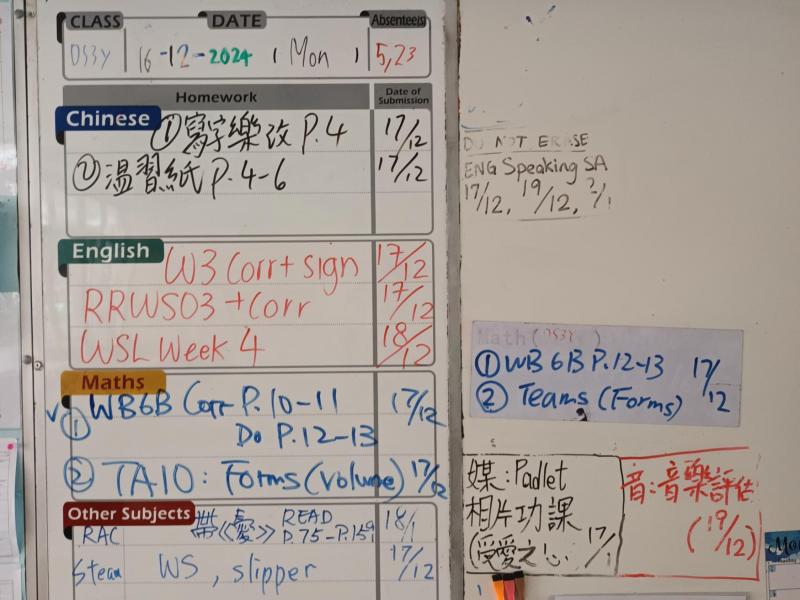 CLASS DATE Absentee(s)
DS3Y 16-12-2024 ( Mon ) 5,23
Homework Date of Submission
Chinese
① 寫字樂改 P.4 17/12
② 溫習紙 P.4-6 17/12
English
W3 Corr + sign 17/12
RRWS03 + Corr 17/12
WSL Week 4 18/12
Maths
① WB6B Corr P.10-11 17/12
Do P.12-13
② TA10: Forms (Volume) 17/12
Other Subjects
RAC 帶《愛》 READ P.75-P.159 18/1
Steam WS, slipper 17/12
DO NOT ERASE
ENG Speaking SA
17/12, 19/12, ?/1
Math (DS3Y)
① WB 6B P.12-13 17/12
② Teams (Forms)
媒: Padlet
相片功課
(受愛之心 17/1
音: 音樂評估
(19/12)